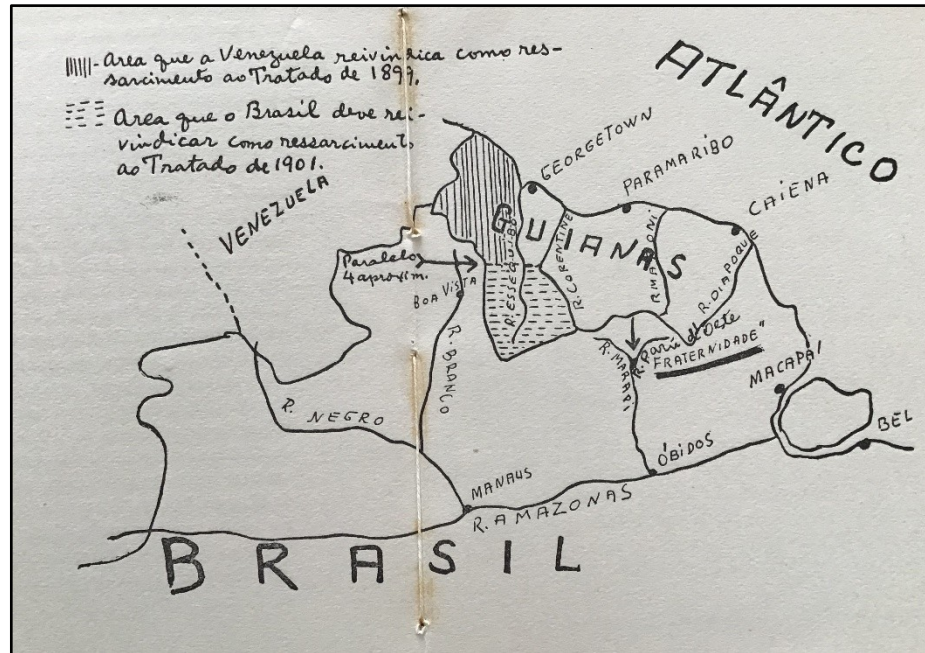 - Area que a Venezuela reivindica como res-
sarcimento ao Tratado de 1899.
Area que o Brasil deve rei-
vindicar como ressarcimento
ao Tratado de 1901.
ATLÂNTICO
VENEZUELA
GEORGETOWN
PARAMARIBO
CAIENA
GUIANAS
Paralelo
4 aproxim.
BOA VISTA
R. ESSEQUIBO
R. CORENTINE
R. MARONI
R. OIAPOQUE
R. BRANCO
R. NEGRO
R. MARAPI
R. Parú d'Oeste
FRATERNIDADE"
MACAPÁ
BEL
ÓBIDOS
MANAUS
R. AMAZONAS
BRASIL